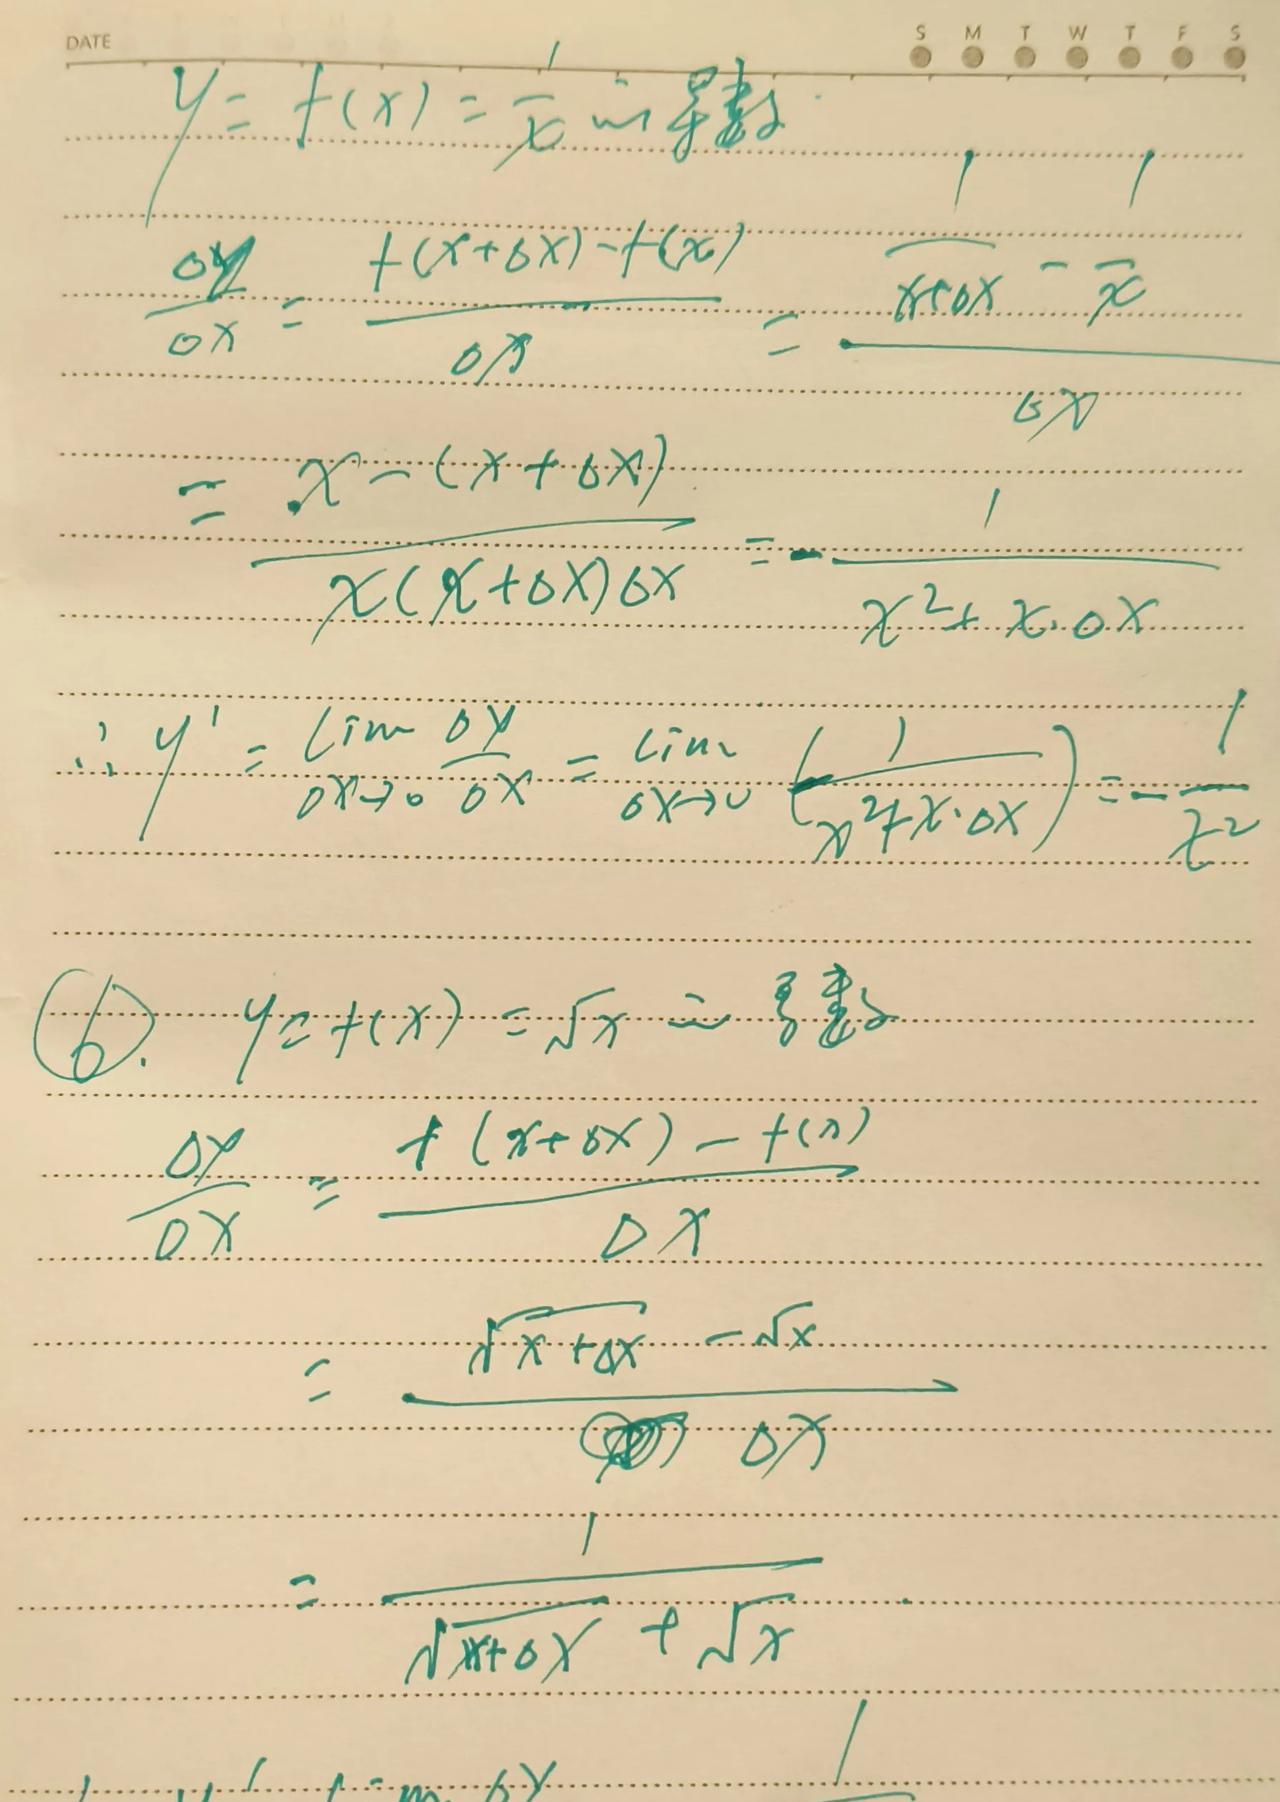 DATE S M T W T F S
y = f(x) = 1/x 的导数
Δy/Δx = (f(x+Δx)-f(x))/Δx = (1/(x+Δx) - 1/x)/Δx
= (x-(x+Δx))/(x(x+Δx)Δx) = -1/(x²+x·Δx)
∴ y' = lim Δx→0 Δy/Δx = lim Δx→0 (-1/(x²+x·Δx)) = -1/x²
6. y = f(x) = √x 的导数
Δy/Δx = (f(x+Δx) - f(x))/Δx
= (√(x+Δx) - √x)/Δx
= 1/(√(x+Δx) + √x)